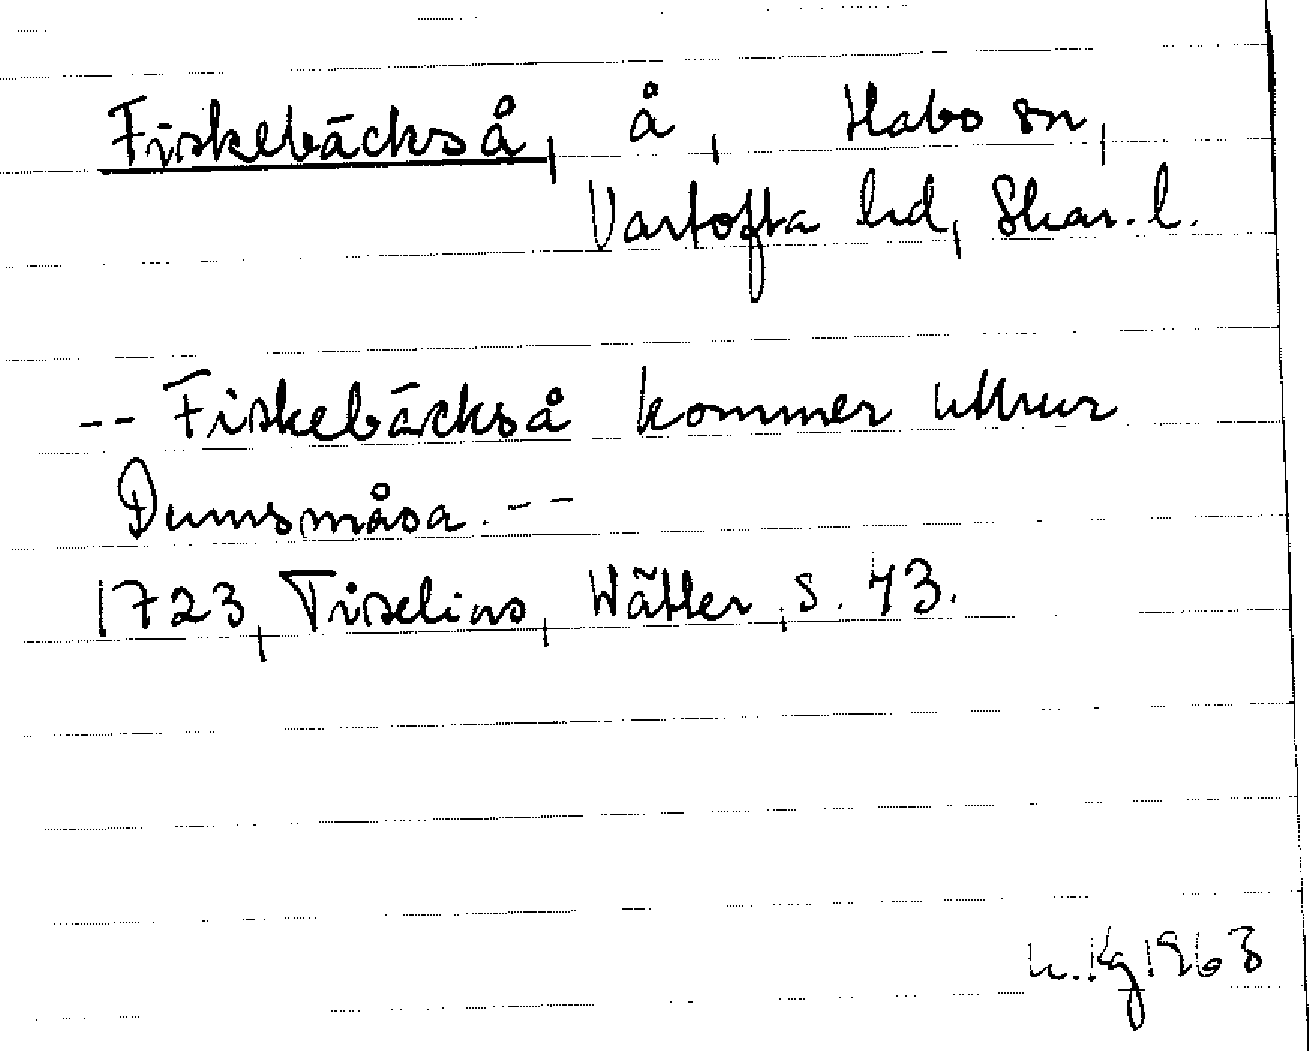 Fiskebäckså, å, Habo sn,
Vartofta hd, Skar. l.
-- Fiskebäckså kommer uthur
Dumsmåsa. --
1723, Tiselius, Wätter, s. 43.
h. Kg 1963